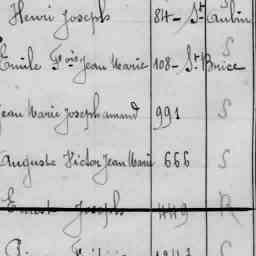 Henri Joseph 84 - St Aubin
Emile Fois Jean Marie 108 - St Brice S
Jean Marie Josephamand 991 S
Auguste Victor Jean Marie 666 S
Ernest Joseph 449 R